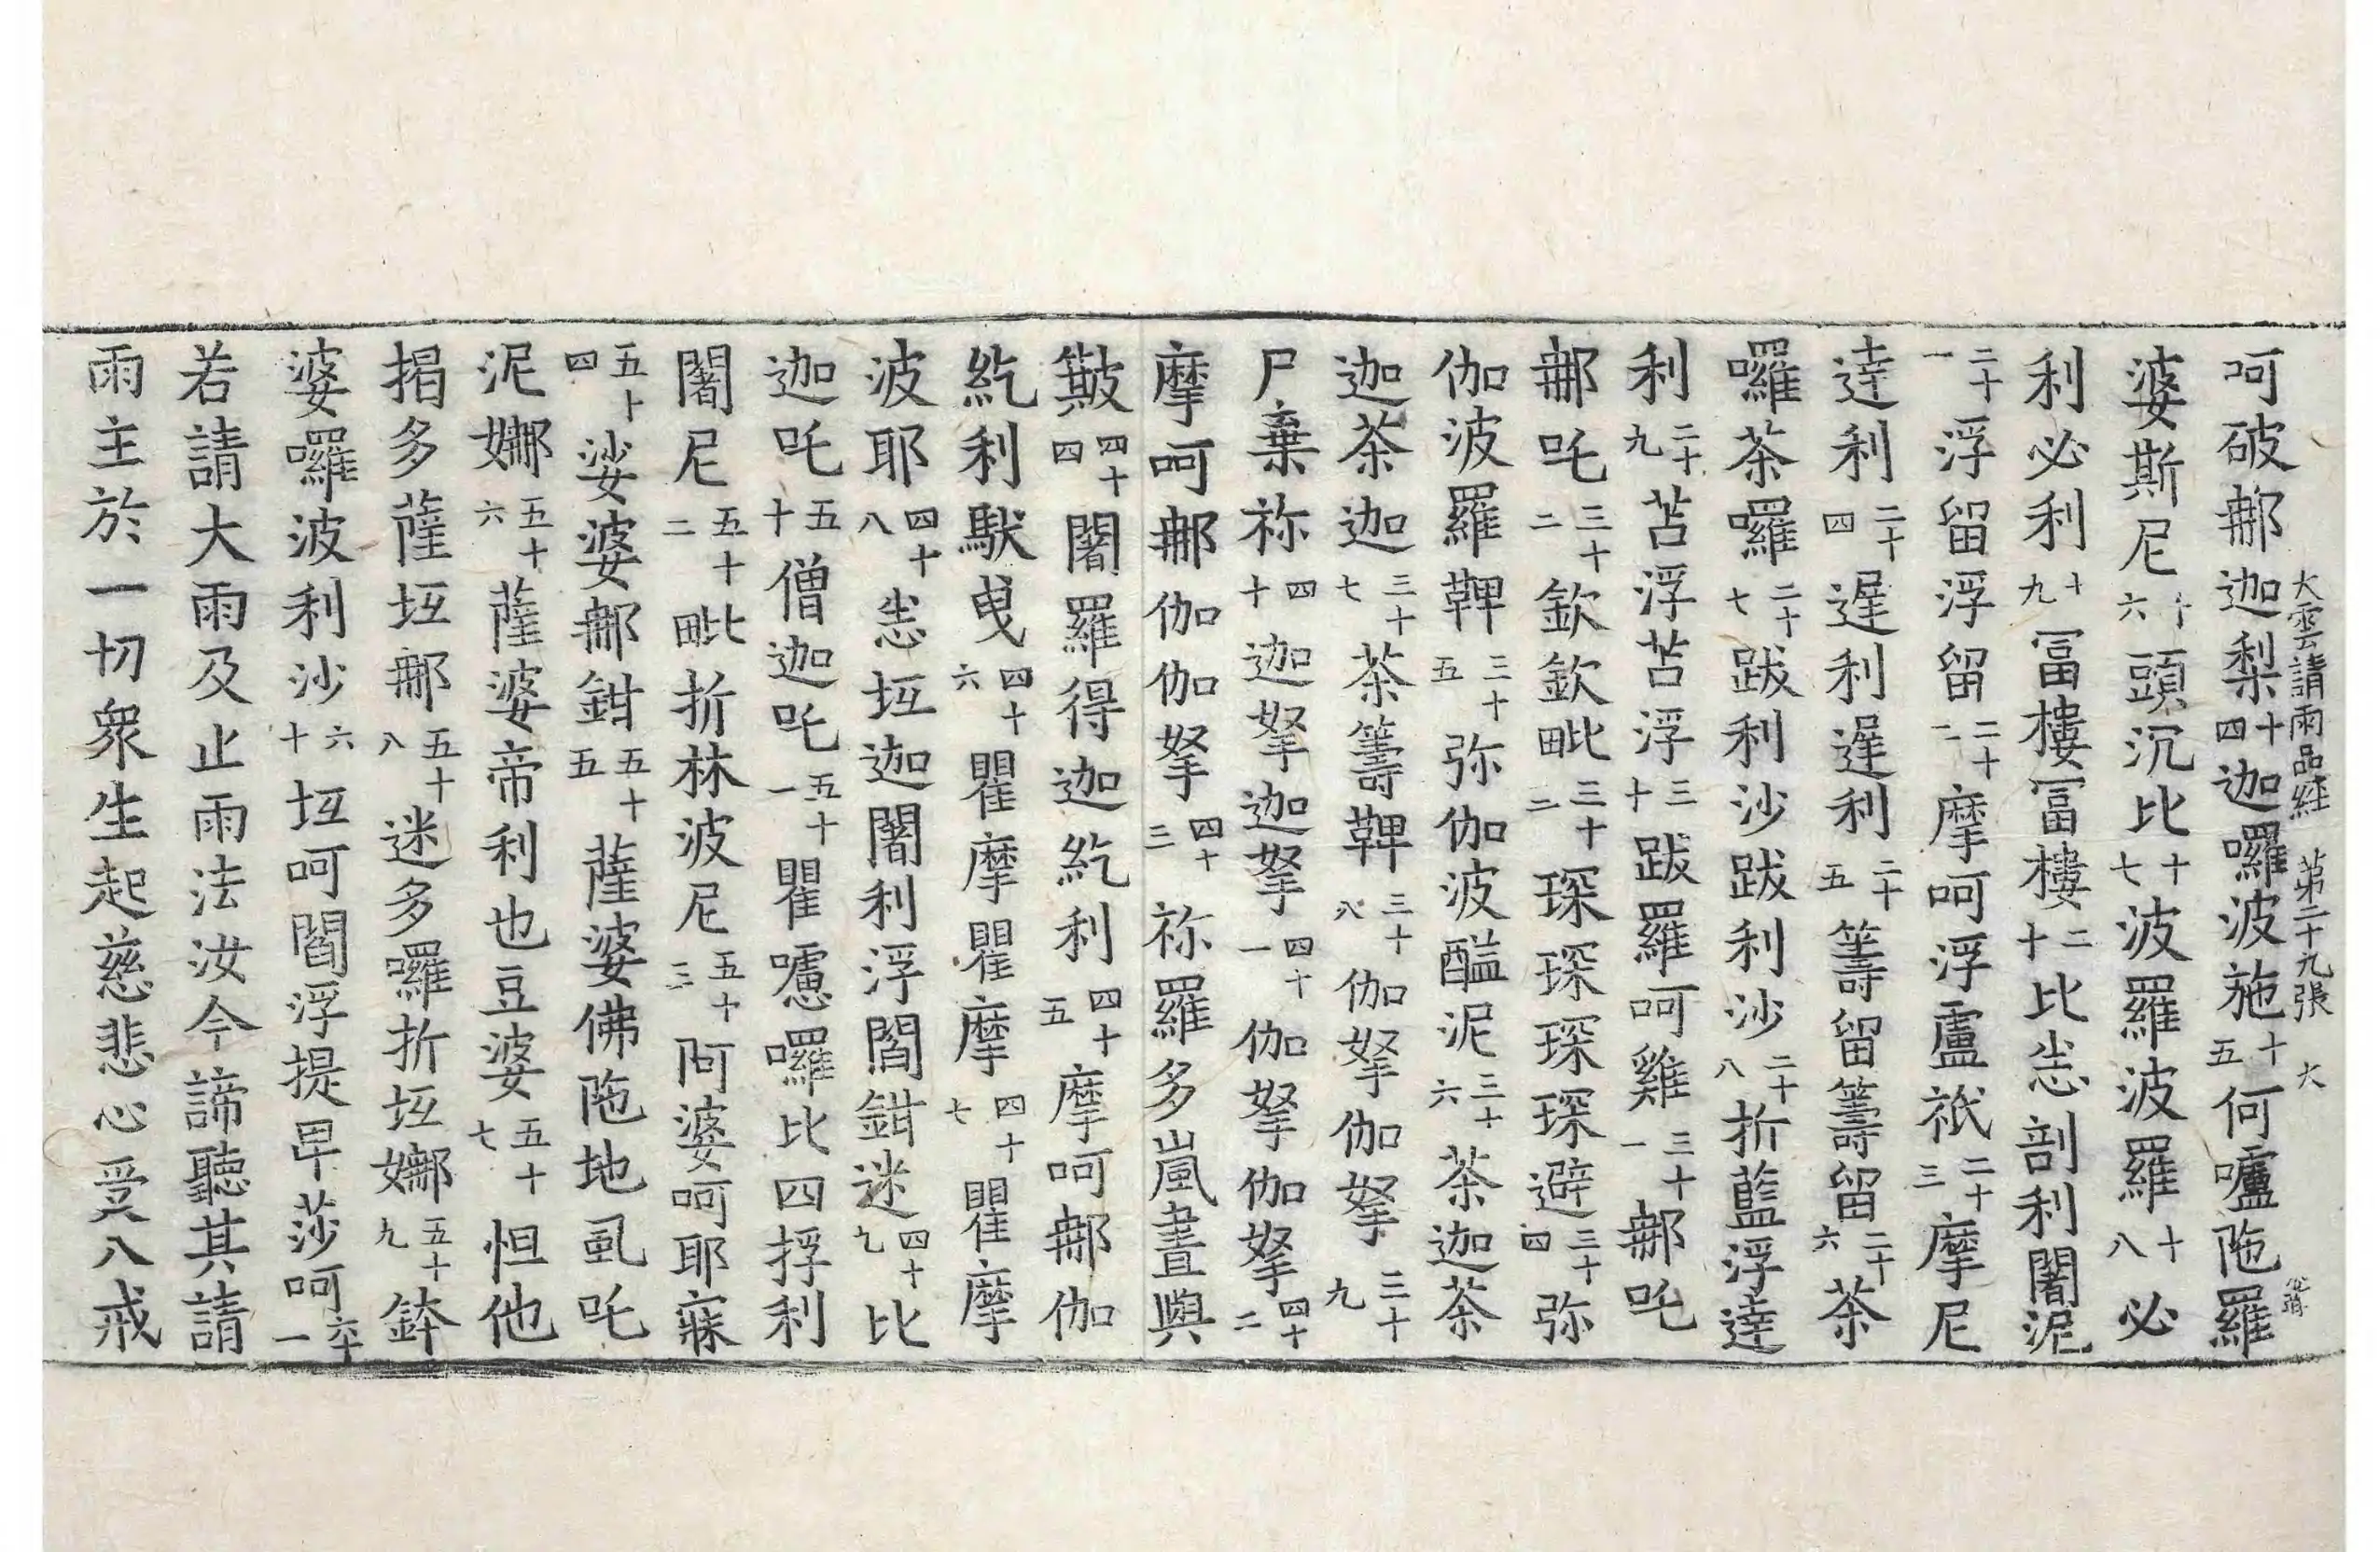 大雲請雨品経 第二十九張 大
呵破𨚗迦梨十四迦囉波施十五何嚧陁羅
婆斯尼十六頭沉比十七波羅波羅十八必
利必利十九冨樓冨樓二十比𢙣剖利闍泥
二十一浮留浮留二十二摩呵浮盧祇二十三摩尼
達利二十四遲利遲利二十五籌留籌留二十六茶
囉茶囉二十七跋利沙跋利沙二十八折藍浮達
利二十九苫浮苫浮三十跋羅呵雞三十一𨚗吒
𨚗吒三十二欽欽毗三十三琛琛琛琛避三十四弥
伽波羅鞞三十五弥伽波醯泥三十六茶迦茶
迦茶迦三十七茶籌鞞三十八伽拏伽拏三十九
尸棄祢四十迦拏迦拏四十一伽拏伽拏四十二
摩呵𨚗伽伽拏四十三祢羅多嵐晝與
簸四十四闍羅得迦紇利四十五摩呵𨚗伽
紇利䭾曳四十六瞿摩瞿摩四十七瞿摩
波耶四十八𢙣坻迦闍利浮閻鉗迷四十九比
迦吒五十僧迦吒五十一瞿嚧囉比四捊利
闍尼五十二毗折林波尼五十三阿婆呵耶寐
五十四娑婆𨚗鉗五十五薩婆佛陁地虱吒
泥娜五十六薩婆帝利也豆婆五十七怛他
揭多薩坻𨚗五十八迷多囉折坻娜五十九鉢
婆囉波利沙六十坻呵閻浮提早莎呵六十一
若請大雨及止雨法汝今諦聽其請
雨主於一切衆生起慈悲心受八戒